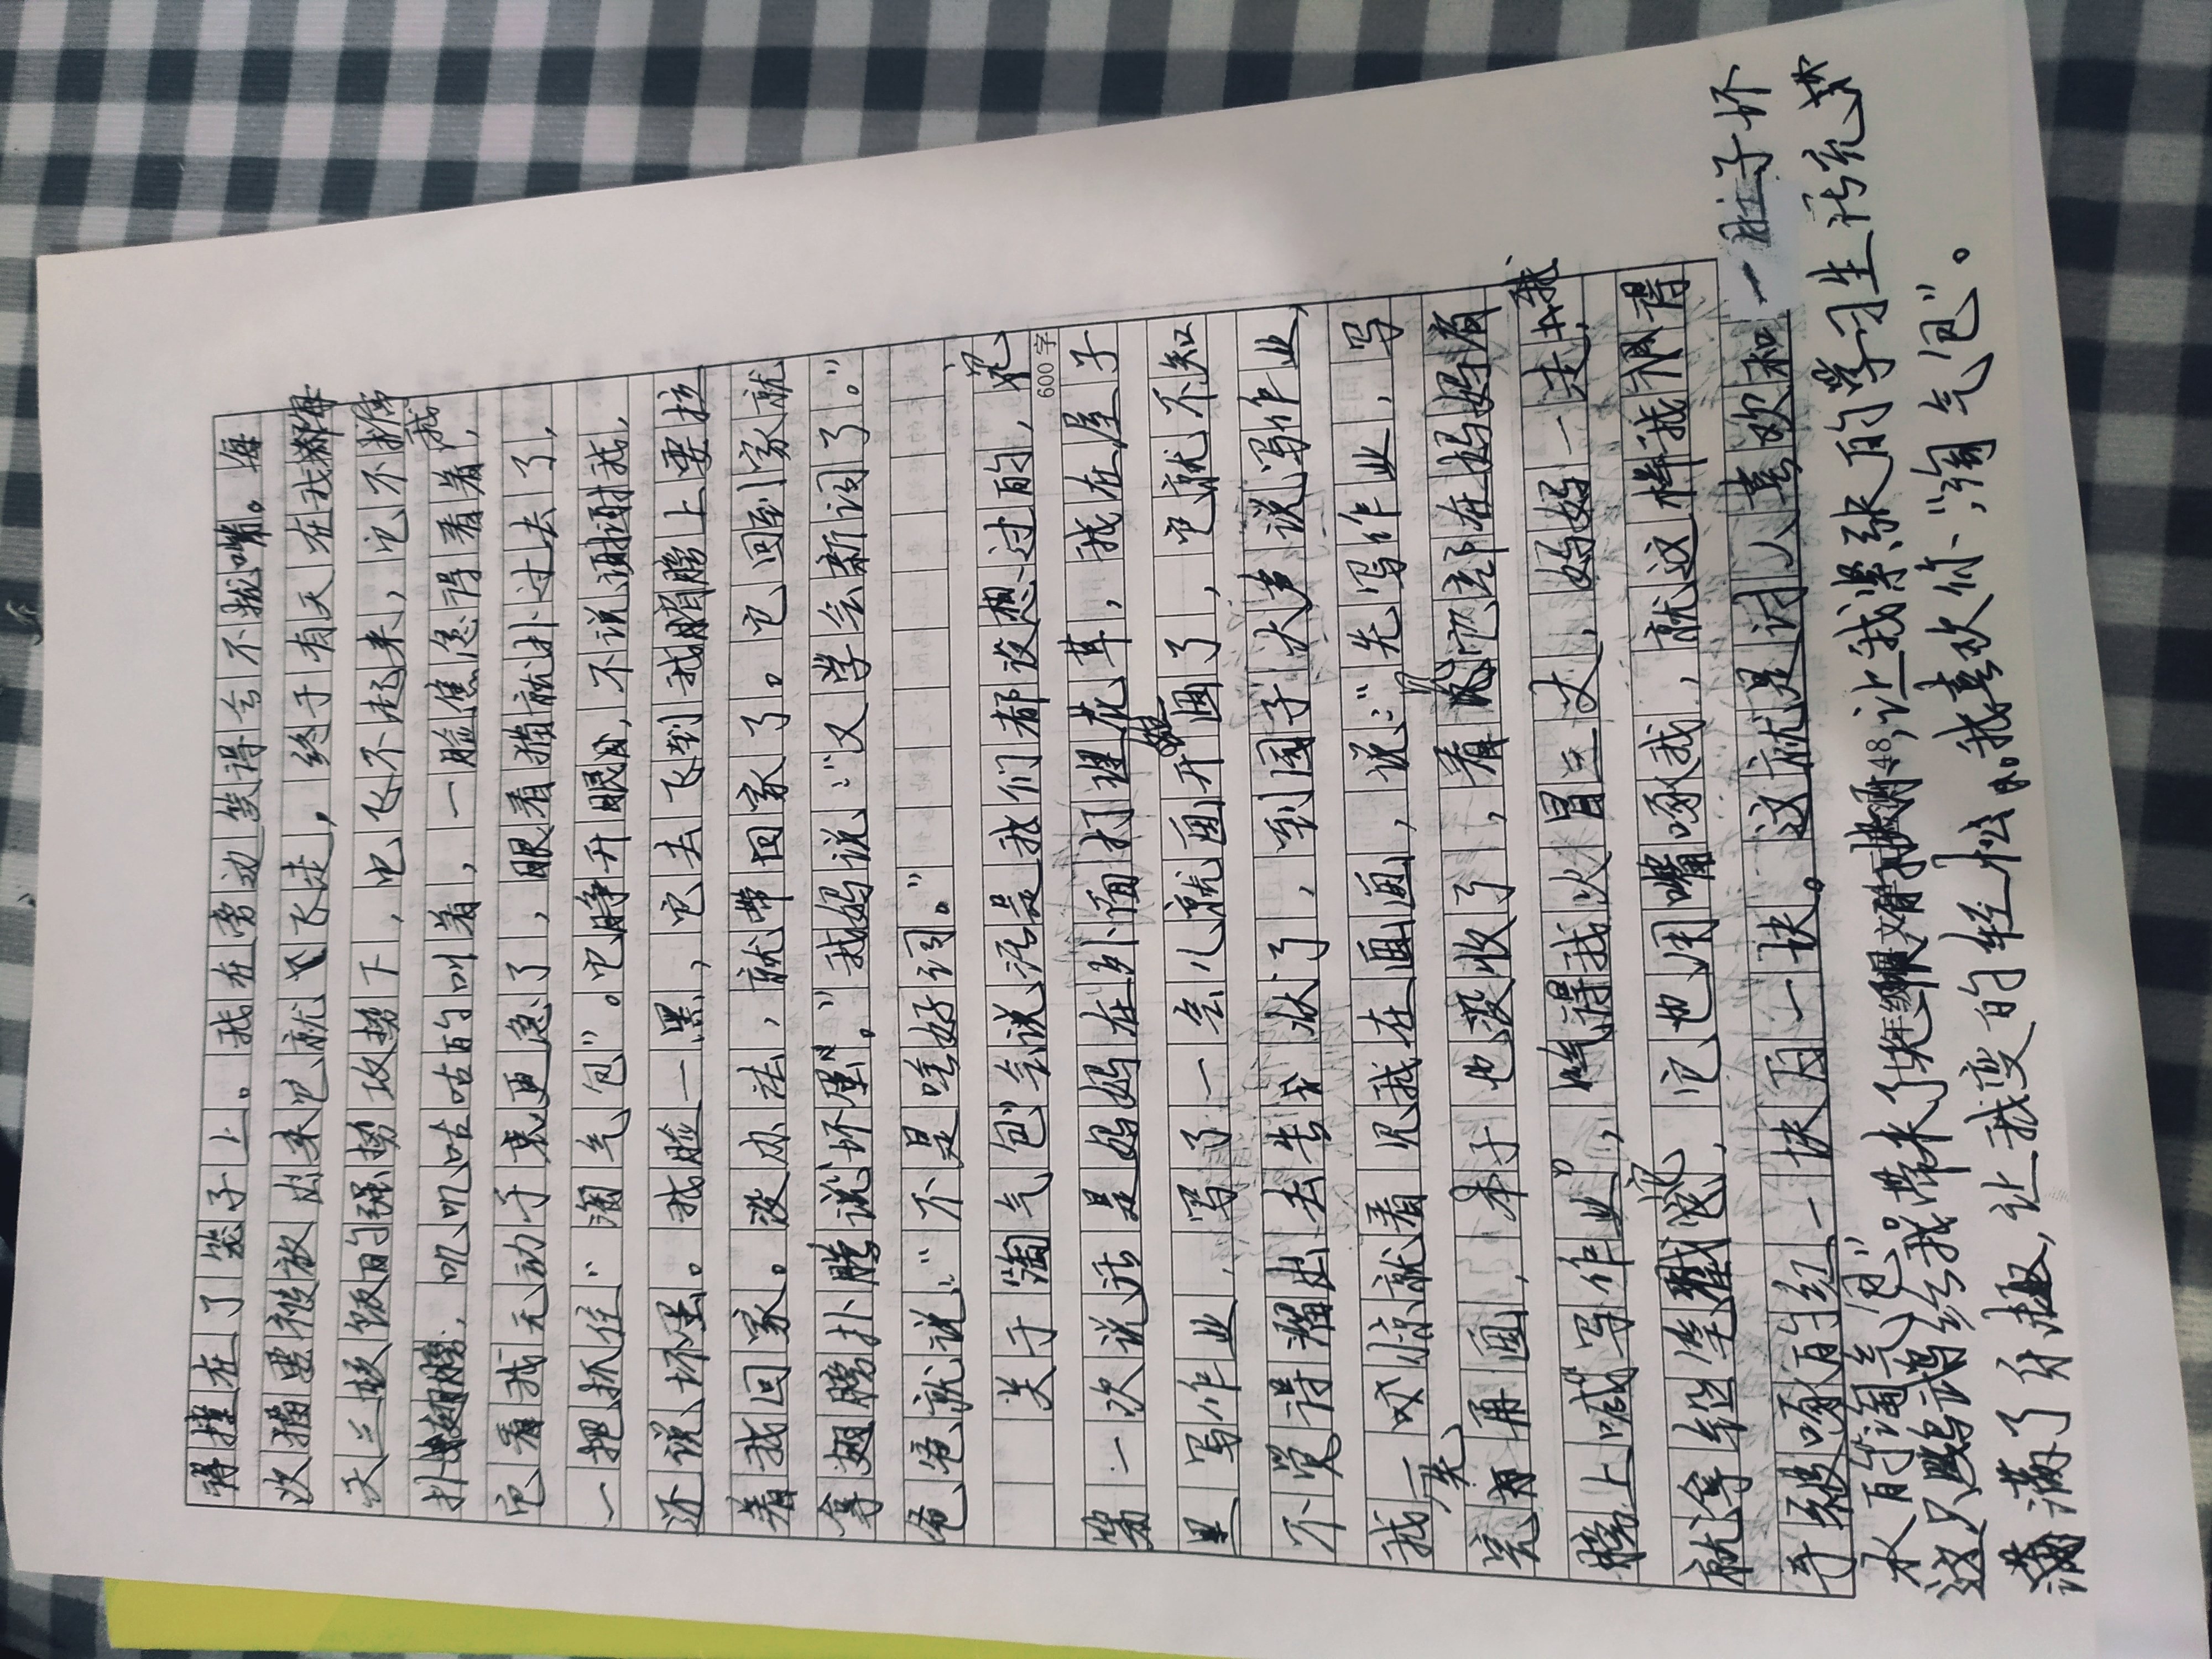 得撞在了笼子上。我在旁边笑得合不拢嘴。每
次猫要被放出来它就飞走，终于有天在我每
天三顿饭的强势攻势下，也飞不起来，它不挠我
扑翅膀，叽叽咕咕的叫着，一脸焦急得看着，
它看我无动于衷更急了，眼看猫就扑过去了，
一把抓住“淘气包”。它睁开眼用，不说谢谢我，
还说坏蛋。我脸一黑，它去飞到我肩膀上要拉
着我回家。没办法，就带回家了。它回到家就
拿翅膀扑腾说“坏蛋”。我妈说：“又学会新词了。”
爸爸就说：“不是啥好词。”
关于“淘气包”会说话是我们都没想过的，记
第一次说话是妈妈在外面打理花草，我在屋子
600字
里写作业，写了一会儿就画开画了，它就不知
不觉得溜出去告状了，到园子大声说写作业，
我一吹惊就看见我在画画，说：“先写作业，写
完再画，本子也没收了，看见它站在妈妈肩
膀上喊“写作业”，气得我火冒三丈，妈妈一走，我
就拿铅笔戳它，它也用嘴啄我，就这样我被得
手被啄的红一块为一块。这就是讨人喜欢和一肚子坏
水的“淘气包”
这只鹦鹉给我带来了，让我紧张的学习生活充满
满了乐趣，让我变的轻松。我喜欢你“淘气包”。